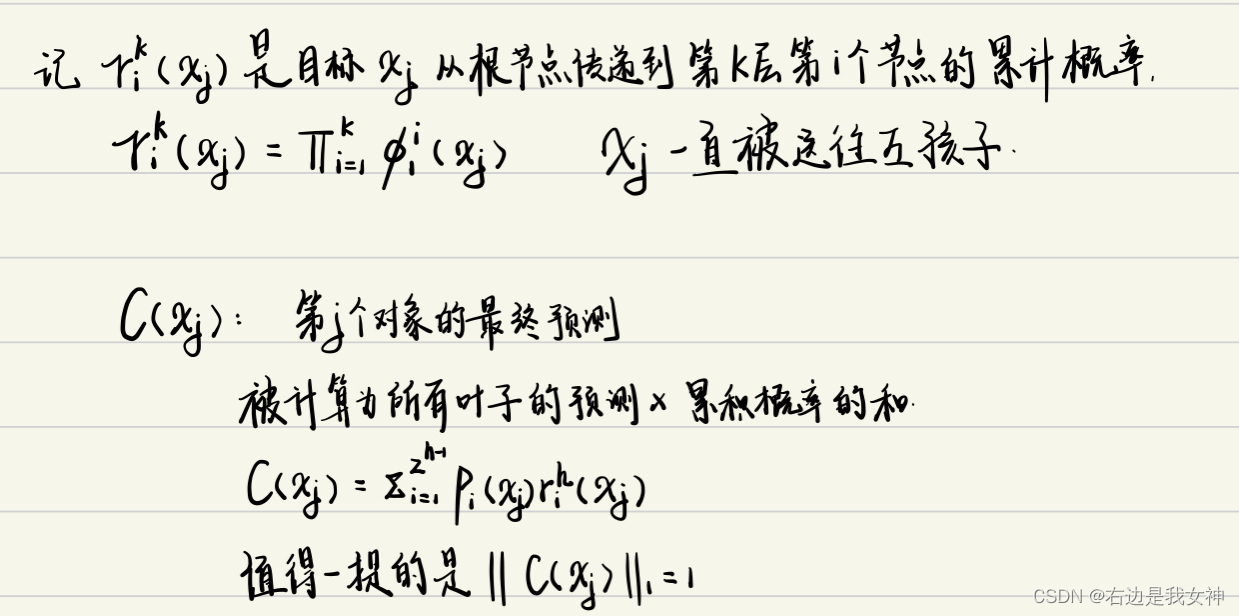 记 r_i^k(x_j) 是目标 x_j 从根节点传递到第k层第i个节点的累计概率.
r_i^k(x_j) = Π_{i=1}^k φ_1^i(x_j)　x_j 一直被送往左孩子.
C(x_j): 第j个对象的最终预测
被计算为所有叶子的预测 × 累积概率的和.
C(x_j) = Σ_{i=1}^{2^{h-1}} p_i(x_j) r_i^h(x_j)
值得一提的是 ‖C(x_j)‖_1 = 1
CSDN @右边是我女神